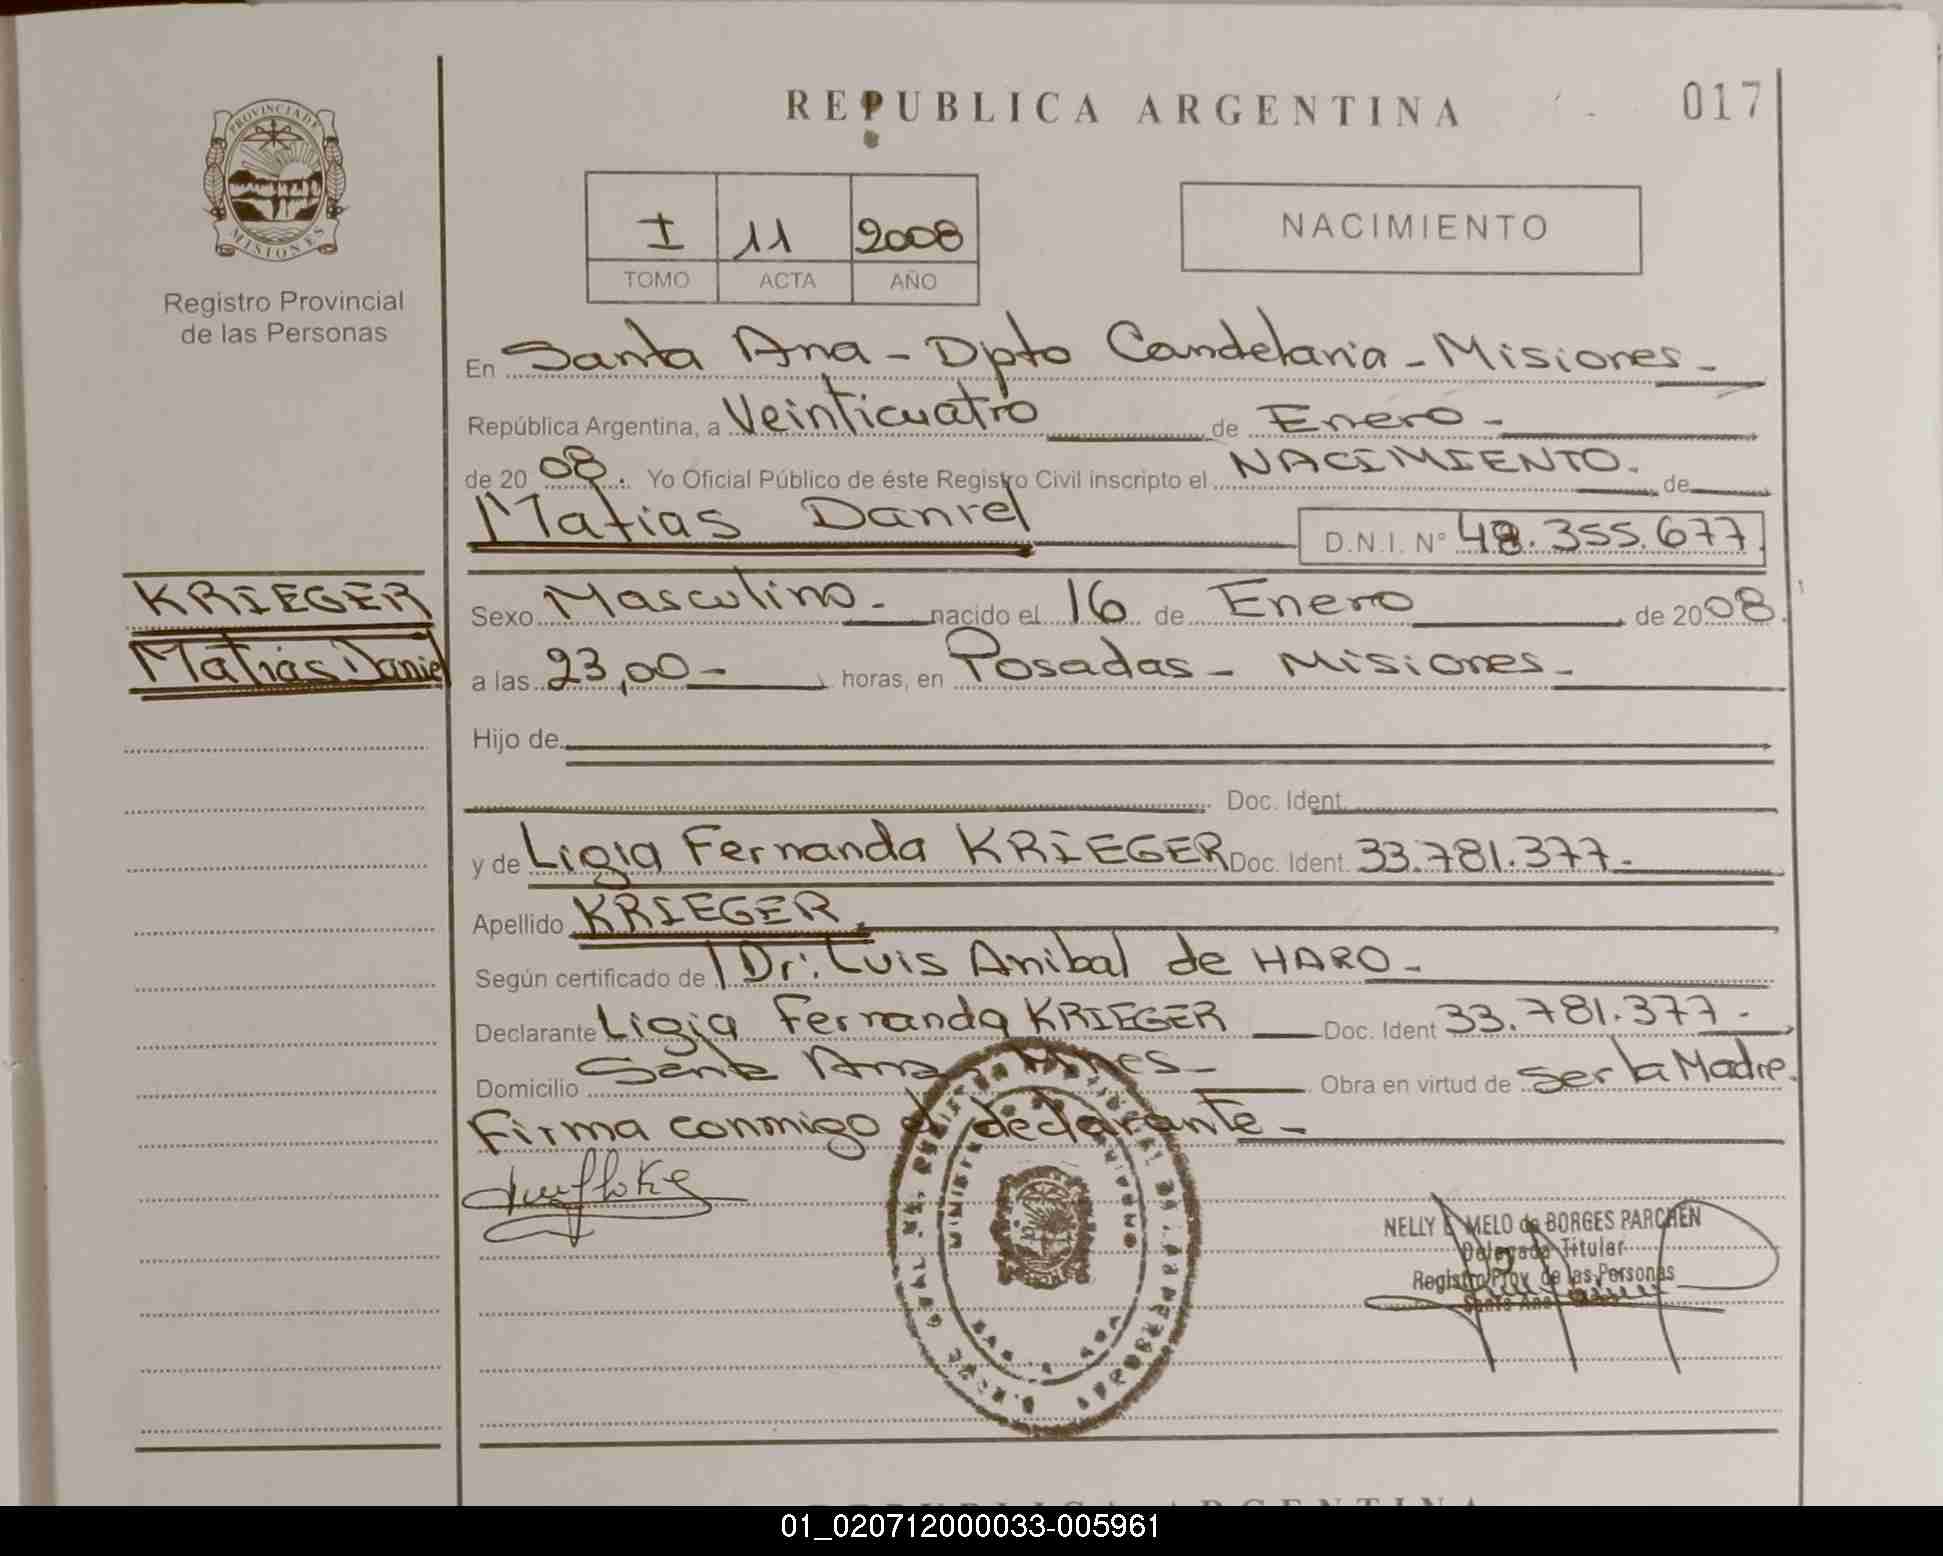 REPUBLICA ARGENTINA
017
PROVINCIA DE
MISIONES
Registro Provincial
de las Personas
I 11 2008
TOMO ACTA AÑO
NACIMIENTO
En Santa Ana - Dpto Candelaria - Misiones -
República Argentina, a Veinticuatro de Enero -
de 20 08. Yo Oficial Público de éste Registro Civil inscripto el NACIMIENTO. de
Matias Daniel D.N.I. Nº 48.355.677
KRIEGER
Matias Daniel
Sexo Masculino - nacido el 16 de Enero de 2008.
a las 23,00 - horas, en Posadas - Misiones -
Hijo de
Doc. Ident.
y de Ligia Fernanda KRIEGER Doc. Ident. 33.781.377 -
Apellido KRIEGER
Según certificado de Dr: Luis Anibal de HARO -
Declarante Ligia Fernanda KRIEGER Doc. Ident 33.781.377 -
Domicilio Santa Ana Mnes - Obra en virtud de Ser la Madre.
Firma conmigo el declarante -
NELLY E. MELO de BORGES PARCHEN
Delegada Titular
Registro Prov. de las Personas
Santa Ana
REPUBLICA ARGENTINA
01_020712000033-005961